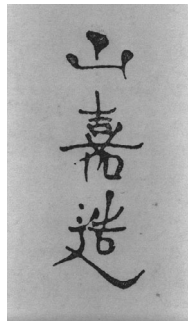 山嘉造